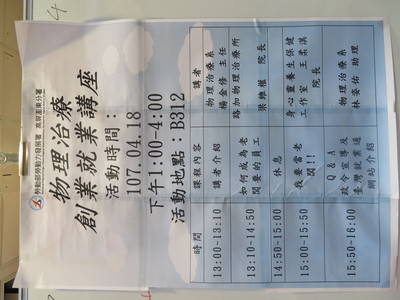 勞動部勞動力發展署 高屏澎東分署
物理治療
創業就業講座
活動時間:
107.04.18
下午1:00-4:00
活動地點:B312
時間 課程內容 講者
13:00-13:10 講者介紹 物理治療系
楊金修 主任
13:10-14:50 如何成為老
闆要的員工 路加物理治療所
梁樺權 院長
14:50-15:00 休息
15:00-15:50 我要當老
闆!! 身心靈養生保健
工作室 王柔淇
院長
15:50-16:00 Q & A
政令宣導及
臺灣就業通
網站介紹 物理治療系
林姿佑 助理